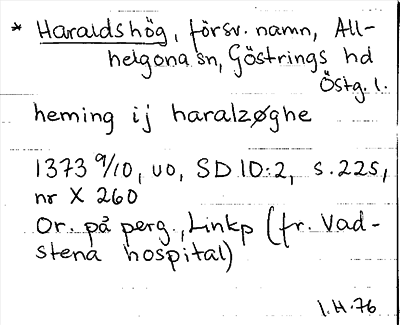 * Haraldshög, försv. namn, All-
helgona sn, Göstrings hd
Östg. l.
heming ij haralzøghe
1373 9/10, uo, SD 10:2, s. 225,
nr X 260
Or. på perg., Linkp (fr. Vad-
stena hospital)
I.H. 76